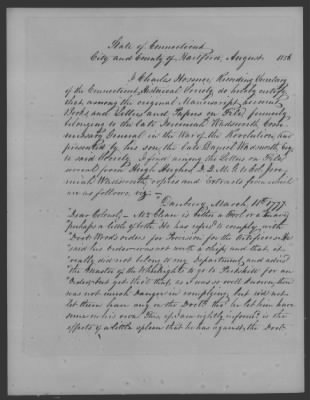 State of Connecticut
City and County of Hartford, August 1856
I Charles Hosmer, Recording Secretary
of the Connecticut Historical Society do hereby certify
that among the original Manuscript account
Books and Letters and Papers on File formerly
belonging to the late Jeremiah Wadsworth, Com-
missary General in the War of the Revolution, and
presented by his son, the late Daniel Wadsworth Esq.
to said Society, I find among the Letters on File
several from Hugh Hughes, D.D.M.G. to Col. Jere-
miah Wadsworth, copies and Extracts from which
are as follows, viz —
Danbury, March 11th 1777.
Dear Colonel,— Mr. Clean is either a Fool or a Knave
perhaps a little of both. He has refused to comply, with
Doct. Woods orders for Provision, for the Artificers. He
said his Order was not worth a chip, and that
really did not belong to my Department, and advised
the Master of the Wheelwrights to go to Peekskill for an
Order; but yet that, as I was so well known, there
was not much danger in complying; but did not
let them have any on the Doctr. tho' he let him have
some on his own. This, if I am rightly informed, is the
effects of a little spleen that he has against the Doctr.